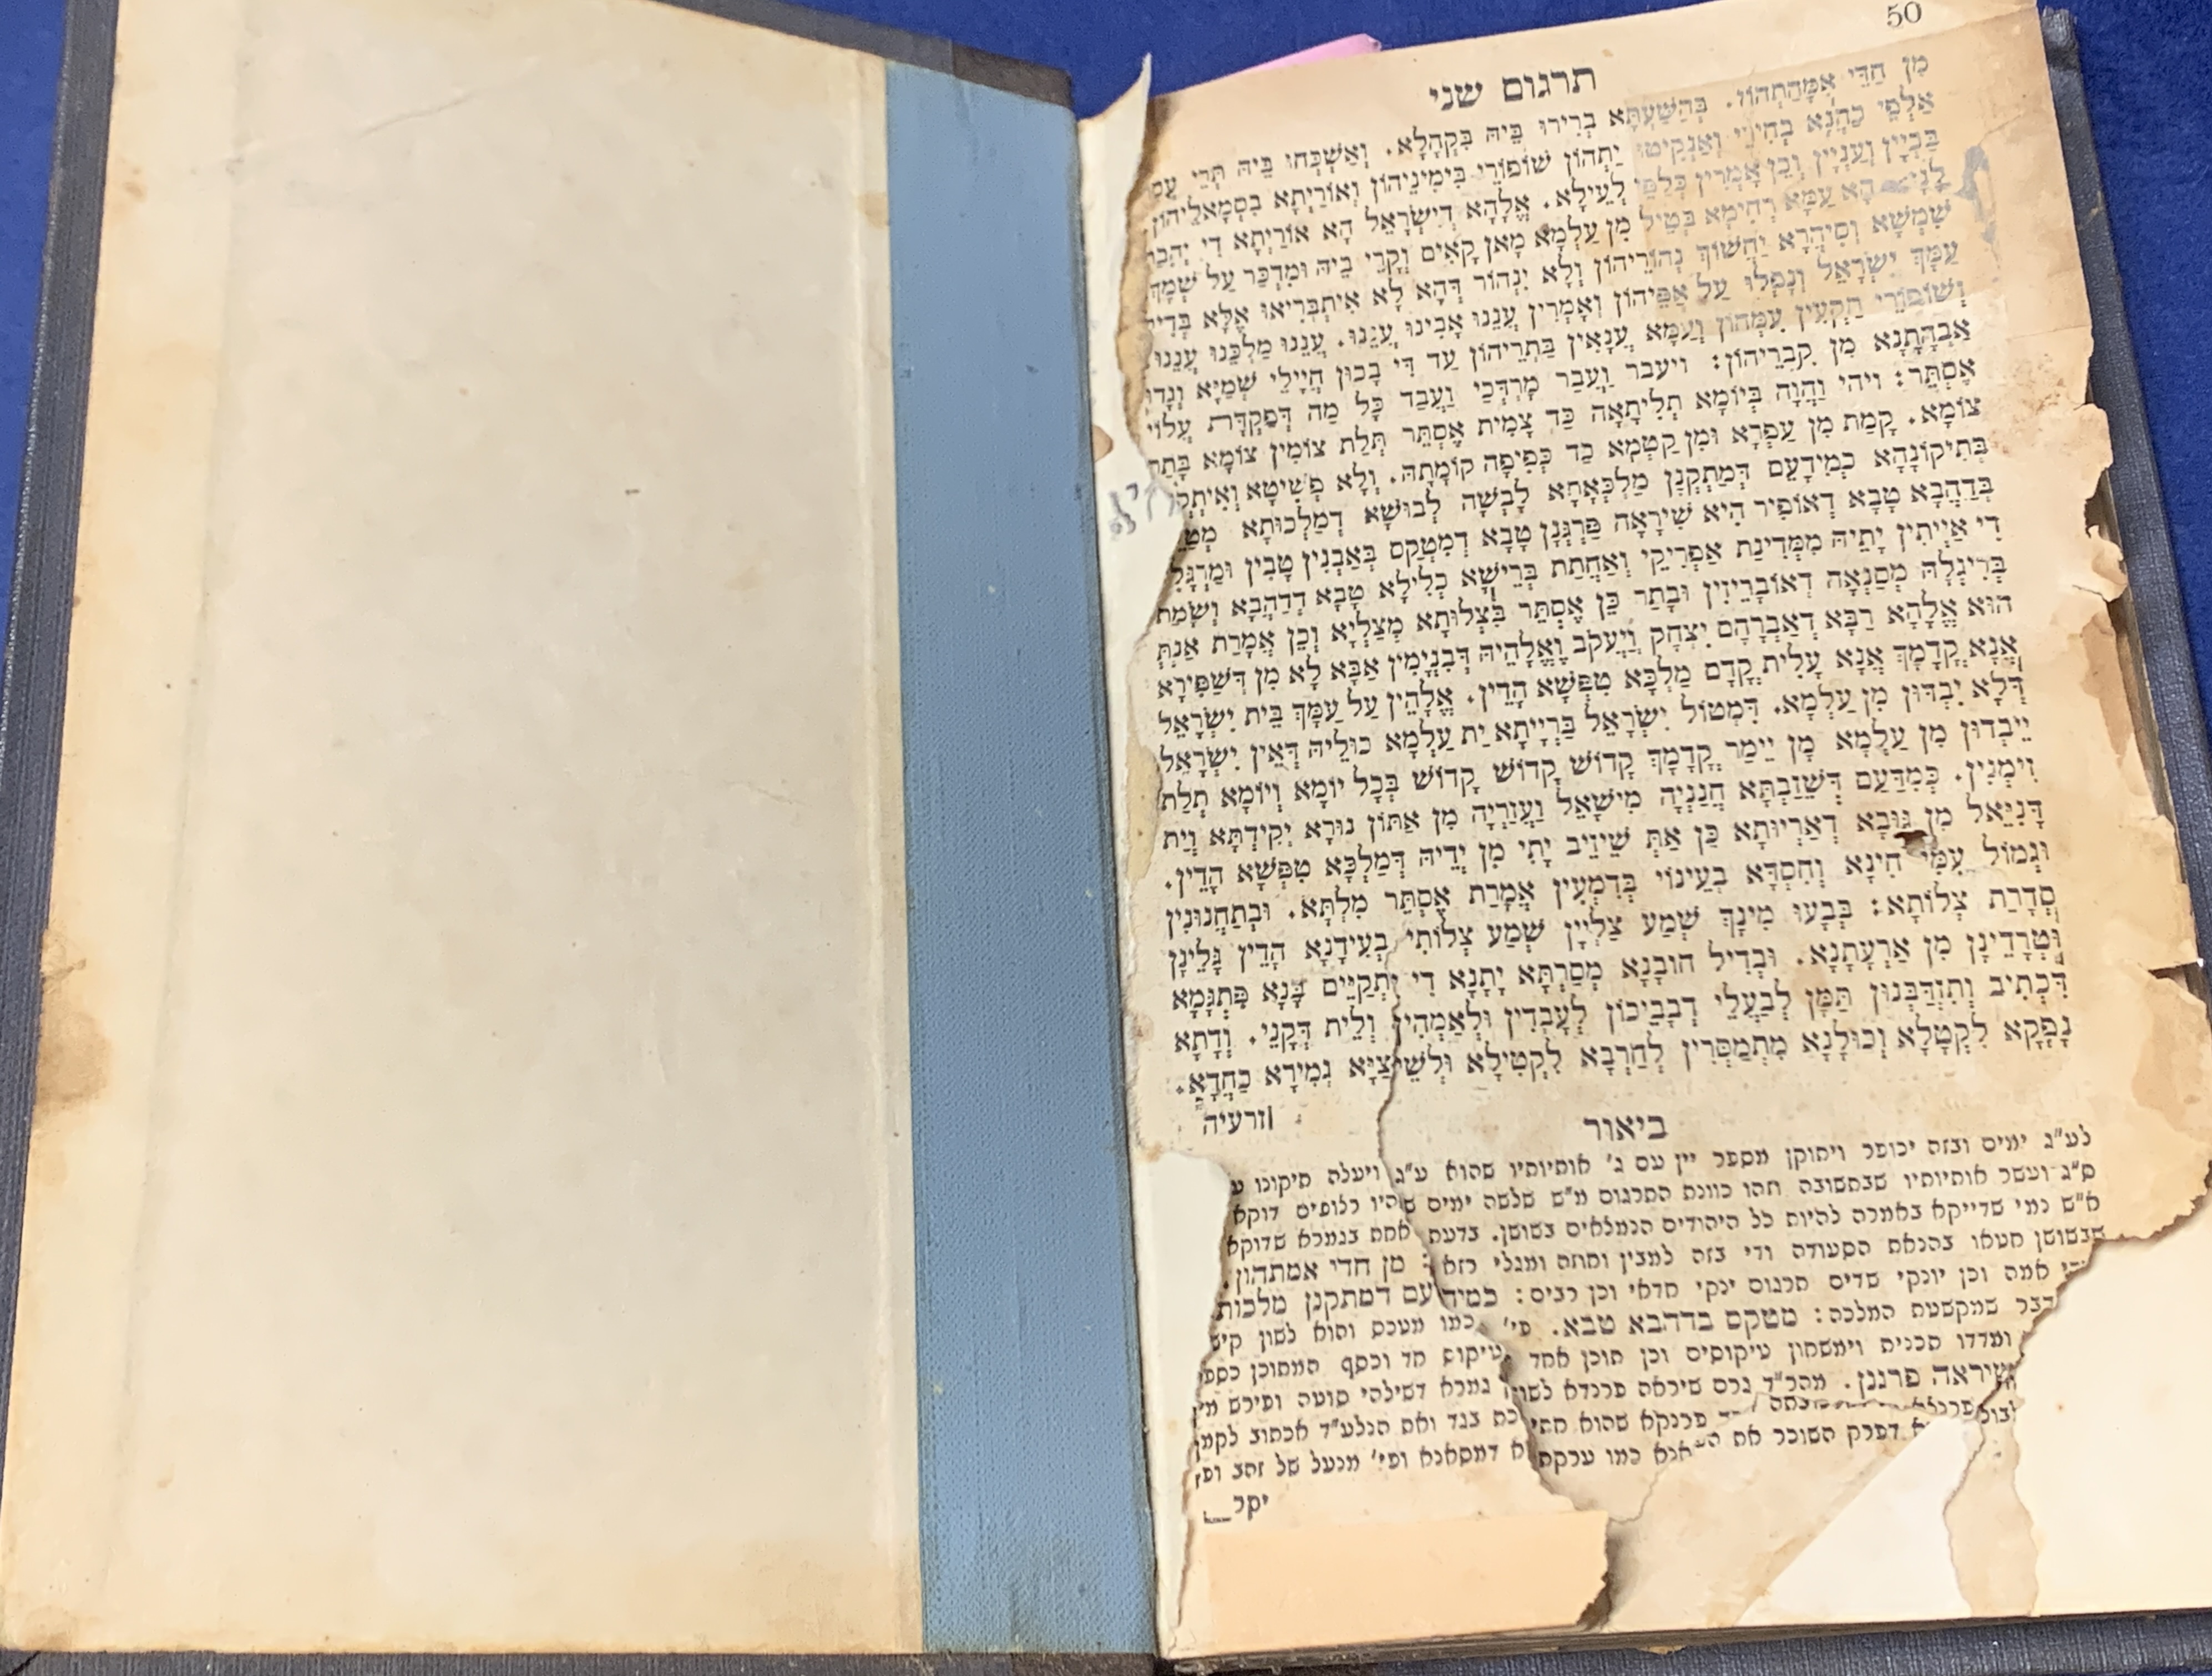 50
תרגום שני
מִן חַדֵּי אִמְּהַתְהוֹן. בְּהַשַּׁעְתָּא בְּרִירוּ בֵּיהּ בִּקְהָלָא. וְאַשְׁכְּחוּ בֵּיהּ תְּרֵי עֲסַר
אַלְפֵי כַּהֲנָא בְּחִירֵי וְאַנְקִיטוּ יַתְהוֹן שׁוֹפוֹרֵי בִּימִינֵיהוֹן וְאוֹרַיְתָא בִּסְמָאלֵיהוֹן
בָּכִיָּין וְעַנְיָין וְכֵן אָמְרִין כְּלַפֵּי לְעֵילָא. אֱלָהָא דְיִשְׂרָאֵל הָא אוֹרַיְתָא דִי יְהַבְתְּ
הָא עַמָּא רְחִימָא בְּטֵיל מִן עַלְמָא מָאן קָאִים וְקָרֵי בֵיהּ וּמִדְכַּר עַל שְׁמָךְ
שִׁמְשָׁא וְסִיהֲרָא יַחְשׁוֹךְ נְהוֹרֵיהוֹן וְלָא יִנְהוֹר דְּהָא לָא אִיתְבְּרִיאוּ אֶלָּא בְּדִיל
עַמָּךְ יִשְׂרָאֵל וְנָפְלוּ עַל אַפֵּיהוֹן וְאָמְרִין עֲנֵנוּ אָבִינוּ עֲנֵנוּ. עֲנֵנוּ מַלְכֵּנוּ עֲנֵנוּ
וְשׁוֹפוֹרֵי תַקְעִין עִמְּהוֹן וְעַמָּא עֲנָאִין בַּתְרֵיהוֹן עַד דִּי בָכוּן חֲיָילֵי שְׁמַיָּא וְנָדוּ
אֲבָהָתָנָא מִן קִבְרֵיהוֹן: ויעבר וַעֲבַר מָרְדְּכַי וַעֲבַד כָּל מַה דְּפַקְּדַת עֲלוֹי
אֶסְתֵּר: ויהי וַהֲוָה בְּיוֹמָא תְלִיתָאָה כַּד צָמִית אֶסְתֵּר תְּלַת צוֹמִין צוֹמָא בָּתַר
צוֹמָא. קָמַת מִן עַפְרָא וּמִן קַטְמָא כַד כְּפִיפָה קוֹמָתָהּ. וְלָא פְּשִׁיטָא וְאִיתְקְ
בְּתִיקוֹנָהָא כְמִידָעַם דְּמַתְקְנָן מַלְכָּאָתָא לָבְשָׁה לְבוּשָׁא דְמַלְכוּתָא מְטַ
בְּדַהֲבָא טָבָא דְאוֹפִיר הִיא שִׁירָאָה פַּרְנְגָן טָבָא דְמִטְקַס בְּאַבְנִין טָבִין וּמַרְגָּלִ
דִי אַיְיתִין יָתֵיהּ מִמְּדִינַת אַפְרִיקֵי וְאַחְתַּת בְּרֵישָׁא כְלִילָא טָבָא דְדַהֲבָא וְשָׂמַת
בְּרִיגְלָהּ מְסָנְאָה דְאוֹבְרֵיזִין וּבָתַר כֵּן אֶסְתֵּר בִּצְלוּתָא מְצַלְיָא וְכֵן אָמְרַת אַנְתְּ
הוּא אֱלָהָא רַבָּא דְאַבְרָהָם יִצְחָק וְיַעֲקֹב וֶאֱלָהֵיהּ דְּבִנְיָמִין אַבָּא לָא מִן דְּשַׁפִּירָא
אֲנָא קֳדָמָךְ אֲנָא עָלִית קֳדָם מַלְכָּא טִפְּשָׁא הָדֵין. אֱלָהֵין עַל עַמָּךְ בֵּית יִשְׂרָאֵל
דְּלָא יֵבְדוּן מִן עַלְמָא. דְּמִטּוֹל יִשְׂרָאֵל בְּרַיְיתָא יַת עַלְמָא כוּלֵּיהּ דְּאִין יִשְׂרָאֵל
יֵיבְדוּן מִן עַלְמָא מָן יֵימַר קֳדָמָךְ קָדוֹשׁ קָדוֹשׁ קָדוֹשׁ בְּכָל יוֹמָא וְיוֹמָא תְּלַת
זִימְנִין. כְּמִדָּעַם דְּשֵׁזַבְתָּא חֲנַנְיָה מִישָׁאֵל וַעֲזַרְיָה מִן אַתּוּן נוּרָא יְקִידְתָּא וְיַת
דָּנִיֵּאל מִן גּוּבָא דְאַרְיְוָתָא כֵּן אַתְּ שֵׁיזֵיב יָתִי מִן יְדֵיהּ דְּמַלְכָּא טִפְּשָׁא הָדֵין.
וּגְמוֹל עִמִּי חִינָא וְחִסְדָּא בְעֵינוֹי בְּדִמְעִין אָמְרַת אֶסְתֵּר מִלְתָּא. וּבְתַחֲנוּנִין
סָדְרַת צְלוֹתָא: בְּבָעוּ מִינָךְ שְׁמַע צַלְיָין שְׁמַע צְלוֹתִי בְּעִידָנָא הָדֵין גָּלֵינָן
וּטְרָדֵינָן מִן אַרְעָתָנָא. וּבְדִיל חוֹבָנָא מְסַרְתָּא יָתָנָא דִי יִתְקַיֵּים בָּנָא פִּתְגָּמָא
דִּכְתִיב וְתִזְדַּבְּנוּן תַּמָּן לְבַעֲלֵי דְבָבֵיכוֹן לְעָבְדִין וּלְאַמְהִין וְלֵית דְּקָנֵי. וְדָתָא
נָפְקָא לִקְטָלָא וְכוּלָּנָא מִתְמַסְּרִין לְחַרְבָּא לִקְטִילָא וּלְשֵׁיצָיָא גְּמִירָא כַּחֲדָא.
וזרעיה
ביאור
לע"ג ימים ובזה יכופר ויתוקן מספר יין עם ג' אותיותיו שהוא ע"ג ויעלה תיקונו ע
ס"ג ועשר אותיותיו שבתשובה וזהו כוונת התרגום מ"ש שלשה ימים שהיו רצופים דוקא
א"ש נמי שדייקא באמרה להיות כל היהודים הנמצאים בשושן. בדעת אמת בגמרא שדוקא
שבשושן חטאו בהנאת הסעודה ודי בזה למבין וחוזה ומגלי רזא: מן חדי אמתהון.
אמה וכן יונקי שדים תרגום ינקי חדאי וכן רבים: כמידעם דמתקנן מלכות
דבר שמקשטת המלכה: מטקס בדהבא טבא. פי' כמו מעכס והוא לשון קיש
ומדדו תכנית וימשחון טיקוסים וכן תוכן אחד טיקוס חד וכסף המתוכן כספ
שיראה פרנגן. מהר"ד גרס שיראה פרנדא לשון גמרא דשילהי סוטה ופירש מי
פרנקא שהוא בגד ואם הנלע"ד אכתוב לקמן
דפרק השוכר את כמו ערקתא דמסאנא ופי' מנעל של זהב ופז
יקר